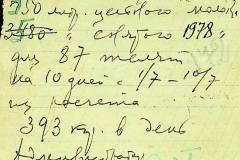 750 лит. цельного молока
3480 " снятого 1978 "
для 87 телят
на 10 дней с 1/7 - 10/7
из расчета
393 кг. в день